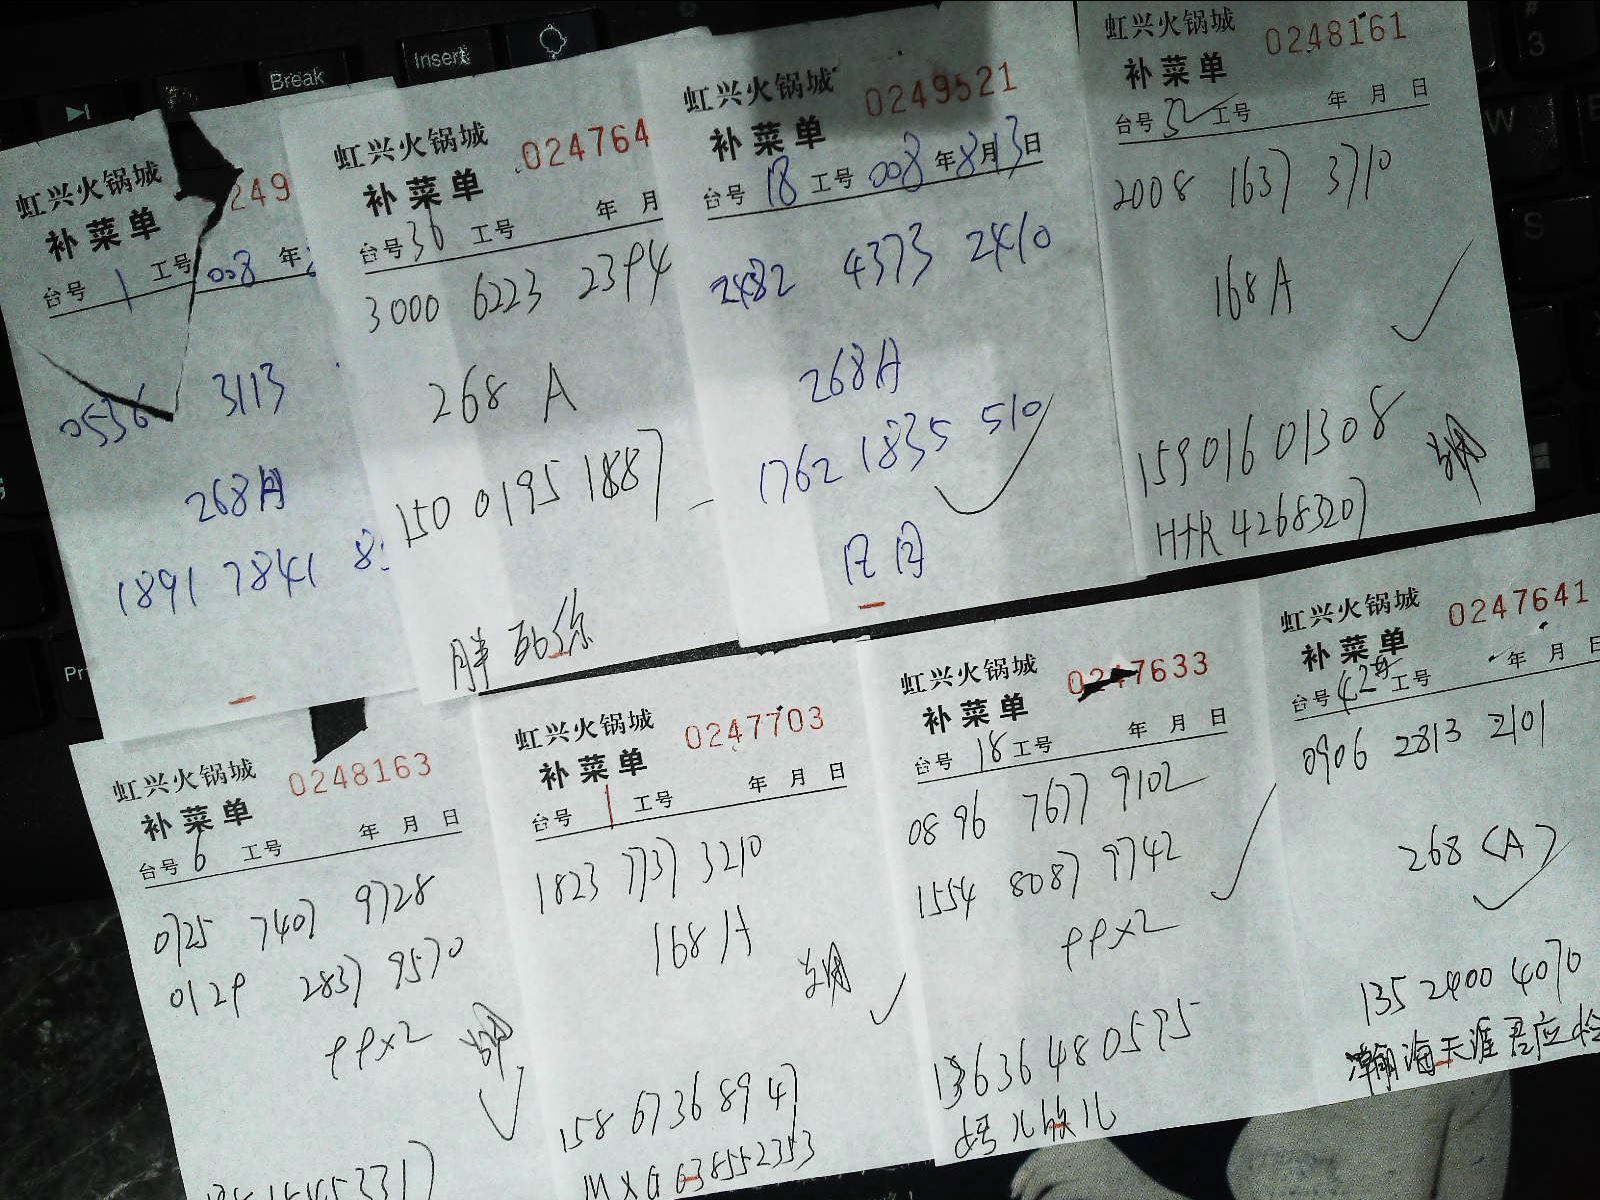 Break
Insert
虹兴火锅城
249
补菜单
台号 1 工号 008 年
0536 3113
268A
1891 7841 8
虹兴火锅城
024764
补菜单
年 月
台号 36 工号
3000 6223 2394
268 A
150 0195 1887
胖
虹兴火锅城
0249521
补菜单
台号 18 工号 008 年 8月13日
2482 4373 2410
268A
1762 1835 510
虹兴火锅城
0248161
补菜单
台号 32 工号 年 月 日
2008 1637 3710
168A
15901601308
HtR 42683207
虹兴火锅城
0248163
补菜单
台号 6 工号 年 月 日
0725 7407 9728
0129 2837 9570
99x2
虹兴火锅城
0247703
补菜单
台号 1 工号 年 月 日
1823 7737 3210
168A
158 6736 8947
MXG638552353
虹兴火锅城
0247633
补菜单
台号 18 工号 年 月 日
0896 7677 9102
1554 8087 9742
99x2
13636480575
虹兴火锅城
0247641
补菜单
台号 42号 工号 年 月 日
0906 2813 2101
268 (A)
135 2400 4070
瀚海天涯君应怜